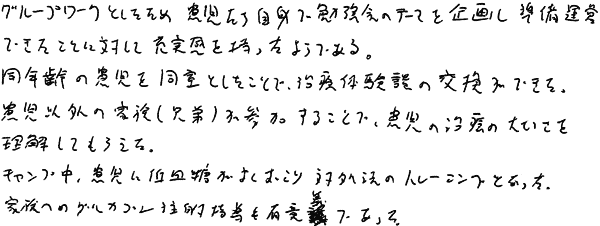 グループワークとしたため 患児たち自身で勉強会のテーマを企画し 準備運営
できたことに対して 充実感を持ったようである。
同年齢の患児を同室としたことで、治療体験談の交換ができた。
患児以外の家族(兄弟)が参加することで、患児の治療の大切さを
理解してもらえた。
キャンプ中、患児に低血糖がよくおこり 対処法のトレーニングとなった。
家族へのグルカゴン注射指導も有意義であった。